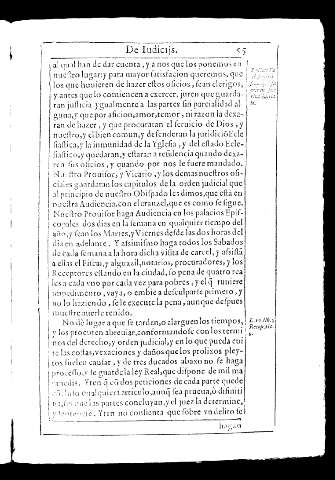 De Iudicijs. 55
al qual han de dar cuenta, y a nos que los ponemos en
nuestro lugar: y para mayor satisfacion queremos, que
los que huuieren de hazer estos oficios, sean clerigos,
y antes que lo comiencen a exercer, juren que guarda-
ran justicia ygualmente a las partes sin parcialidad al
guna, y que por aficion, amor, temor, ni razon la dexa-
ran de hazer, y que procuraran el seruicio de Dios, y
nuestro, y el bien comun, y defenderan la juridicion Ecle
siastica, y la inmunidad de la Yglesia, y del estado Ecle-
siastico, y quedaran, y estaran a residencia quando dexa-
ren sus oficios, y quando por nos le fuere mandado.
Nuestro Prouisor, y Vicario, y los demas nuestros ofi-
ciales guardaran los capitulos de la orden judicial que
al principio de nuestro Obispado les dimos, que esta en
nuestra Audiencia, con el aranzel, que es como se sigue.
Nuestro Prouisor haga Audiencia en los palacios Epis-
copales dos dias en la semana en qualquier tiempo del
año, y sean los Martes, y Viernes desde las dos horas del
dia en adelante. Y assimismo haga todos los Sabados
de cada semana a la hora dicha visita de carcel, y assista
a ellas el Fiscal, y alguazil, notarios, procuradores, y los
Receptores estando en la ciudad, so pena de quatro rea
les a cada vno por cada vez para pobres, y el q̃ tuuiere
impedimento, vaya, o embie a desculparse primero, y
no lo haziendo, se le execute la pena, aunque despues
muestre auerle tenido.
No dè lugar a que se tarden, o alarguen los tiempos,
y los procuen abreuiar, conformandose con los termi
nos del derecho, y orden judicial, y en lo que pueda eui
te las costas, vexaciones, y daños que los prolixos pley-
tos suelen causar, y de tres ducados abaxo no se haga
processo, y se guarde la ley Real, que dispone de mil ma
rauedis. Yten q̃ cõ dos peticiones de cada parte quede
cõcluso qualquier articulo, aunq̃ sea prueua, ò difiniti
ua, sin que las partes concluyan, y el juez la determine,
y sentencie. Yten no consienta que sobre vn delito se
hagan